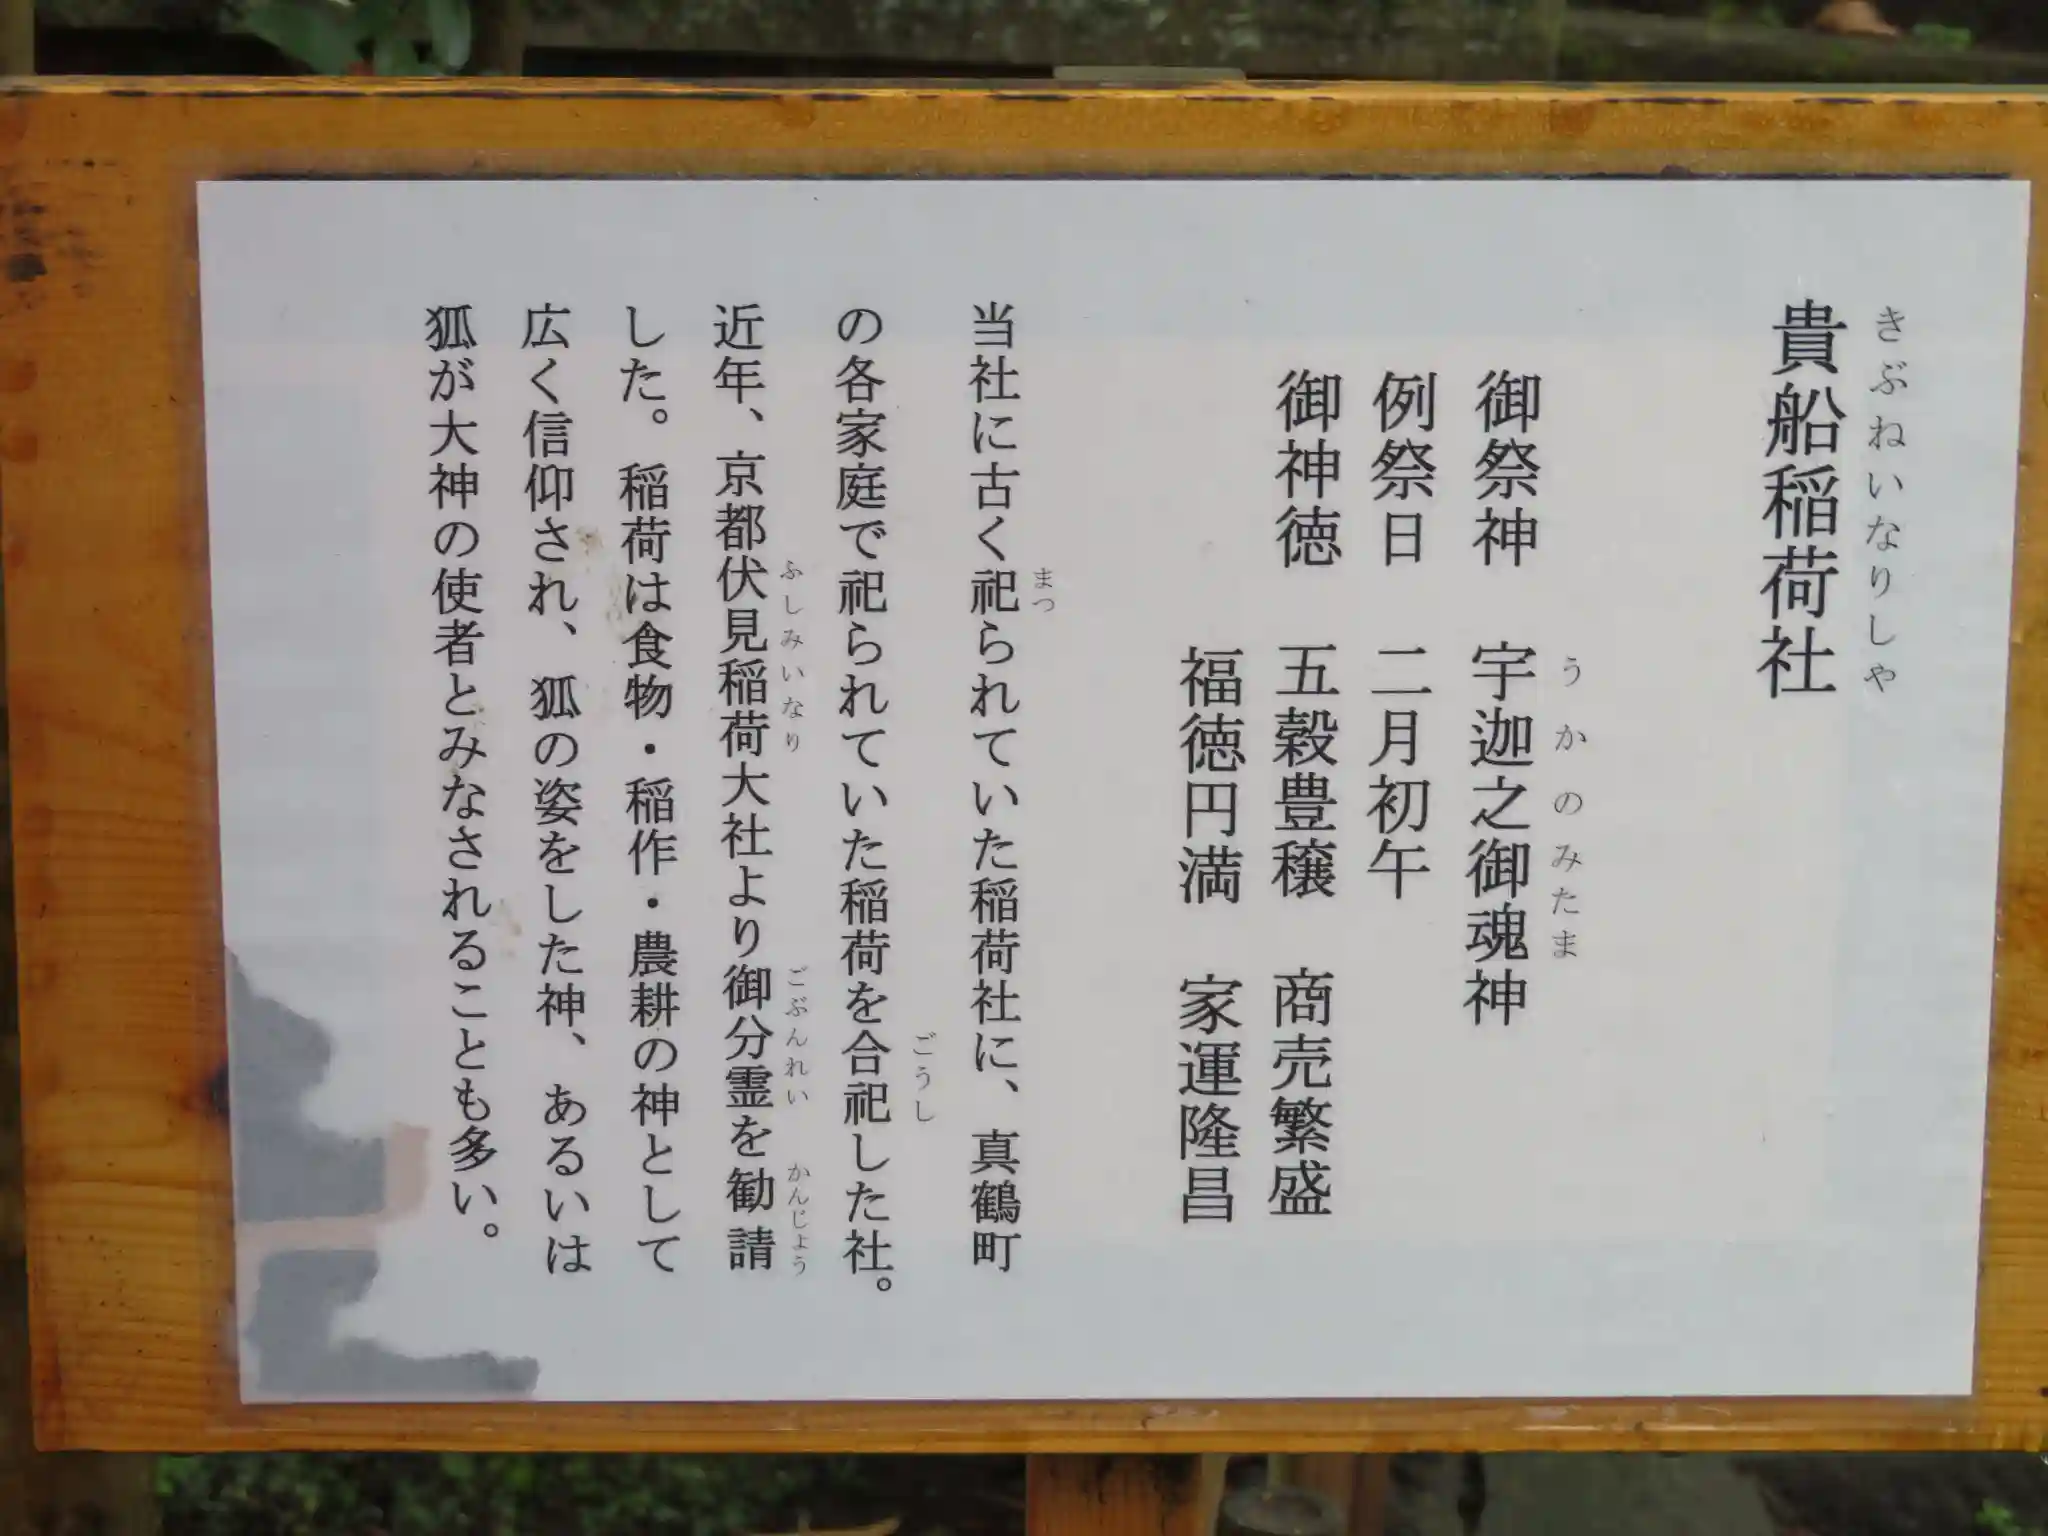 貴船稲荷社
きぶねいなりしゃ
御祭神　宇迦之御魂神
うかのみたま
例祭日　二月初午
御神徳　五穀豊穣　商売繁盛
福徳円満　家運隆昌
当社に古く祀られていた稲荷社に、真鶴町
まつ
の各家庭で祀られていた稲荷を合祀した社。
ごうし
近年、京都伏見稲荷大社より御分霊を勧請
ふしみいなり　ごぶんれい　かんじょう
した。稲荷は食物・稲作・農耕の神として
広く信仰され、狐の姿をした神、あるいは
狐が大神の使者とみなされることも多い。